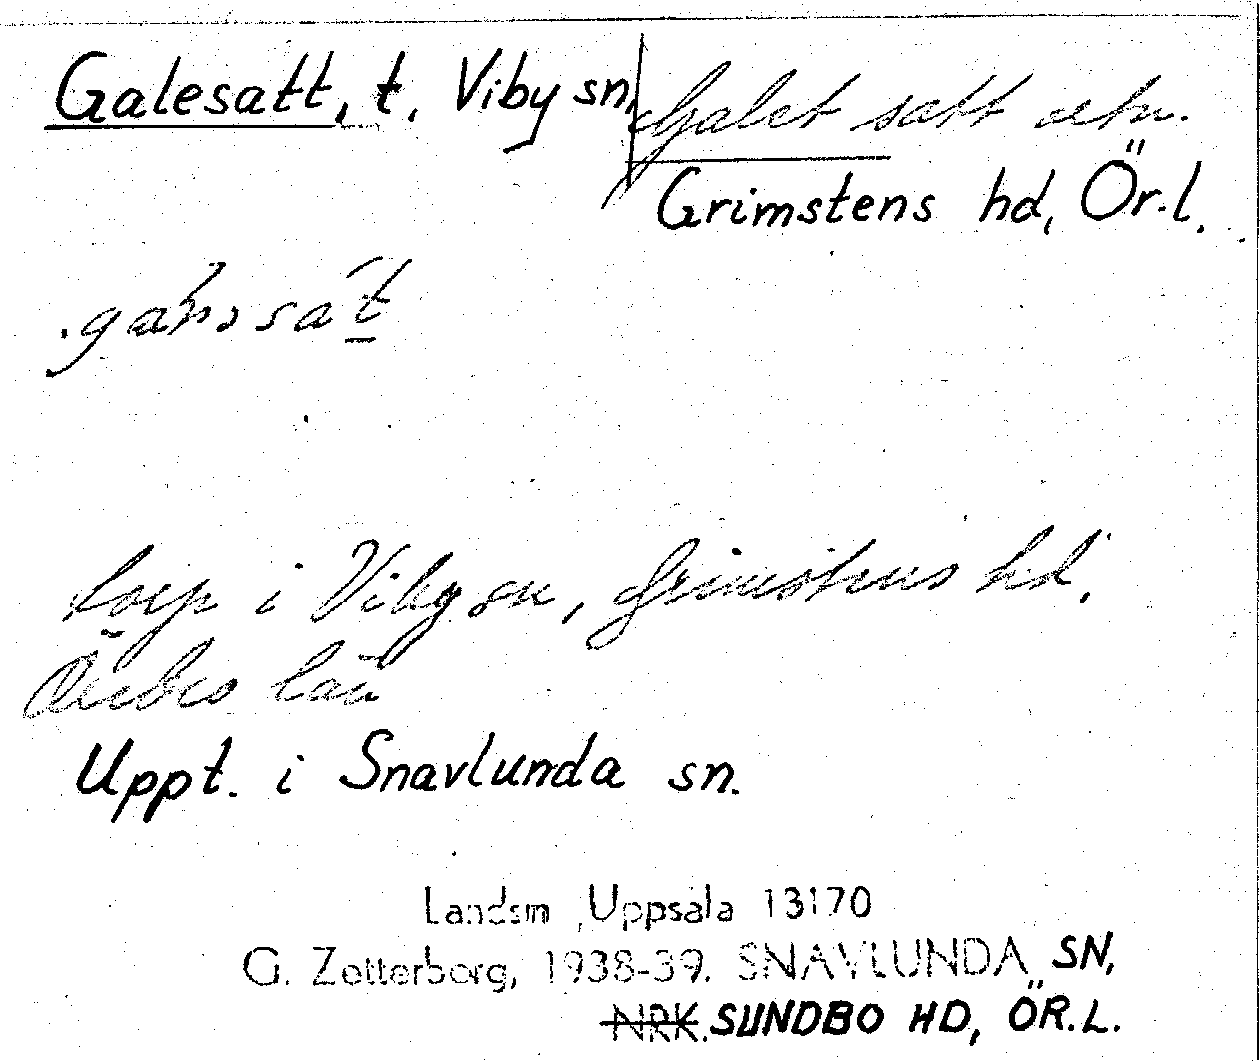 Galesatt, t. Viby sn, Galet satt etn.
Grimstens hd, Ör.l.
torp i Viby sn, Grimstens hd,
Örebro län
Uppt. i Snavlunda sn.
Landsm. Uppsala 13170
G. Zetterberg, 1938-39. SNAVLUNDA SN,
NRK. SUNDBO HD, ÖR.L.